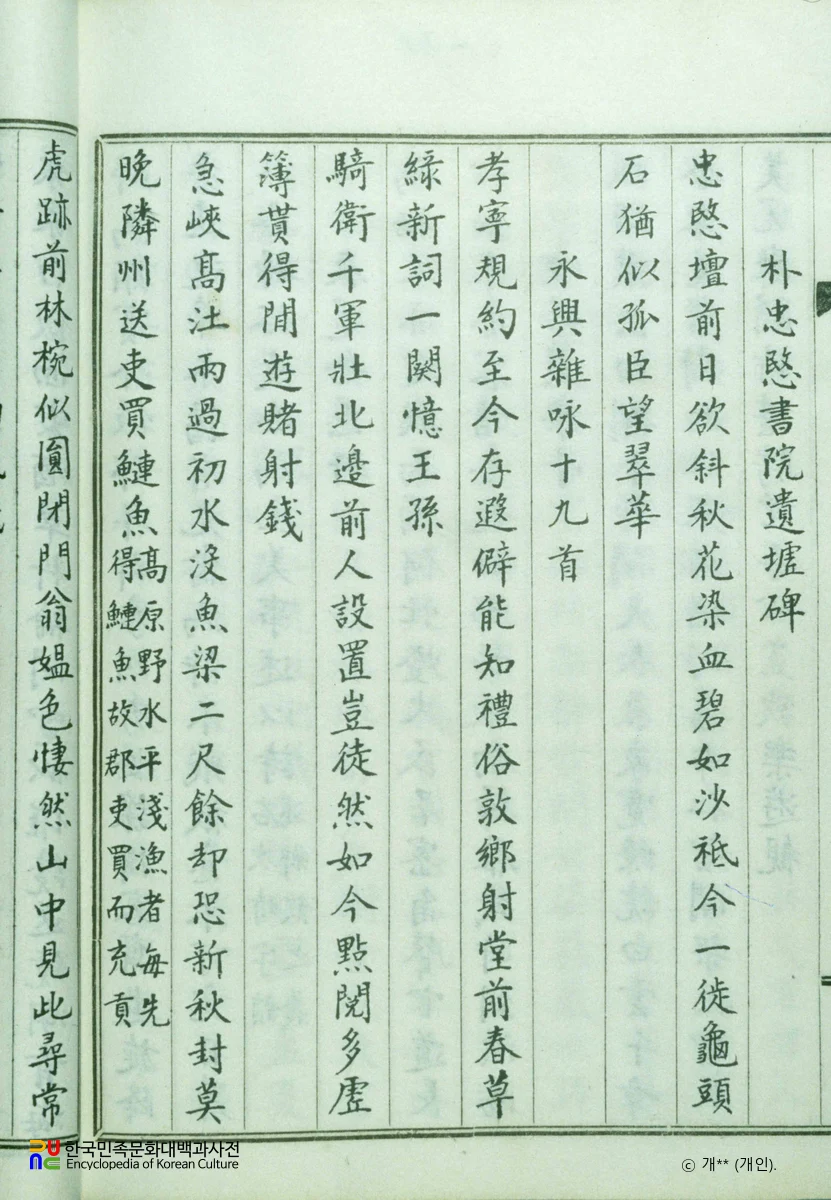 朴忠愍書院遺墟碑
忠愍壇前日欲斜秋花染血碧如沙祗今一徙龜頭
石猶似孤臣望翠華
永興雜咏十九首
孝寧規約至今存遐僻能知禮俗敦鄉射堂前春草
綠新詞一闋憶王孫
騎衛千軍壯北邊前人設置豈徒然如今點閱多虛
簿貰得閒遊賭射錢
急峽高江雨過初水沒魚梁二尺餘却恐新秋封莫
晚隣州送吏買鰱魚高原野水平淺漁者每先
得鰱魚故郡吏買而充貢
虎跡前林椀似圓閉門翁媼色悽然山中見此尋常
한국민족문화대백과사전
Encyclopedia of Korean Culture
ⓒ 개** (개인).